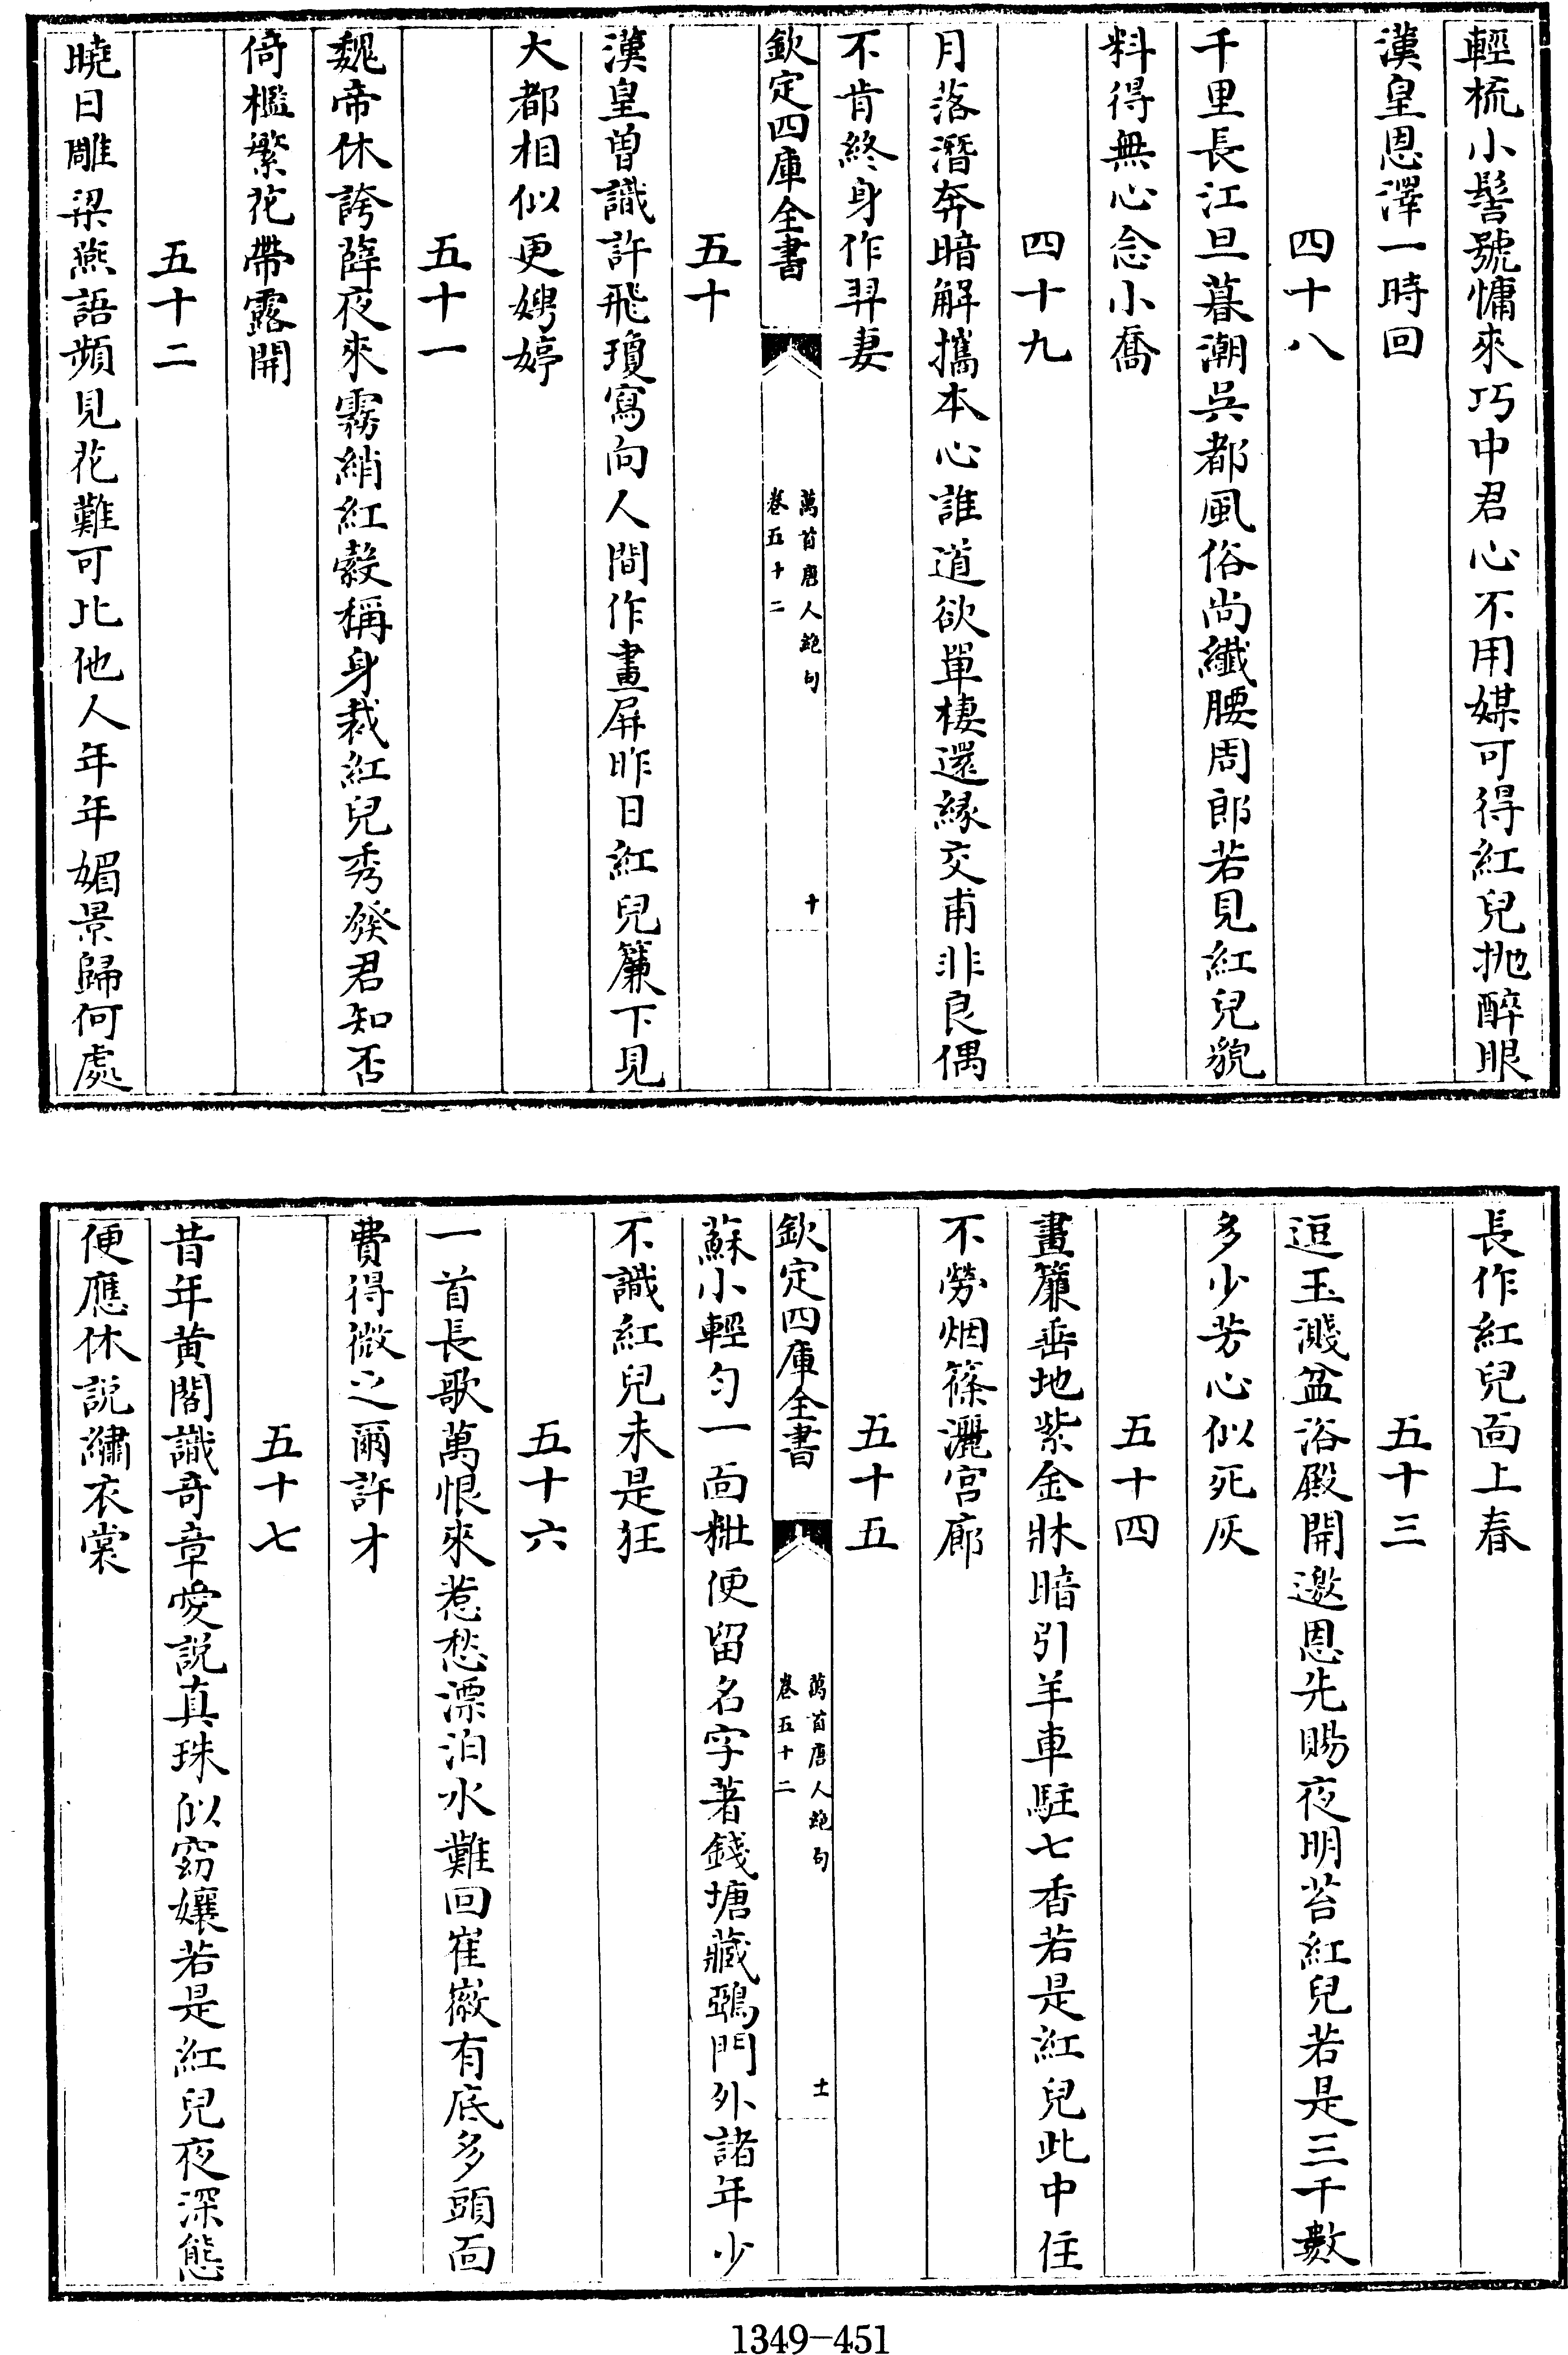 輕梳小髻號慵來巧中君心不用媒可得紅兒抛醉眼
漢皇恩澤一時回
四十八
千里長江旦暮潮吳都風俗尚纖腰周郎若見紅兒貌
料得無心念小喬
四十九
月落潛奔暗解攜本心誰道欲單棲還縁交甫非良偶
不肯終身作羿妻
欽定四庫全書
萬首唐人絶句
卷五十二
十
五十
漢皇曽識許飛瓊寫向人間作畫屏昨日紅兒簾下見
大都相似更娉婷
五十一
魏帝休誇薛夜來霧綃紅縠稱身裁紅兒秀發君知否
倚檻繁花帶露開
五十二
曉日雕梁燕語頻見花難可比他人年年媚景歸何處
長作紅兒面上春
五十三
逗玉濺盆浴殿開邀恩先賜夜明苔紅兒若是三千數
多少芳心似死灰
五十四
畫簾垂地紫金牀暗引羊車駐七香若是紅兒此中住
不勞烟篠灑宮廊
欽定四庫全書
萬首唐人絶句
卷五十二
十一
五十五
蘇小輕勻一面粧便留名字著錢塘藏鵶門外諸年少
不識紅兒未是狂
五十六
一首長歌萬恨來惹愁漂泊水難回崔徽有底多頭面
費得微之爾許才
五十七
昔年黄閣識奇章愛説真珠似窈孃若是紅兒夜深態
便應休説繡衣裳
1349-451